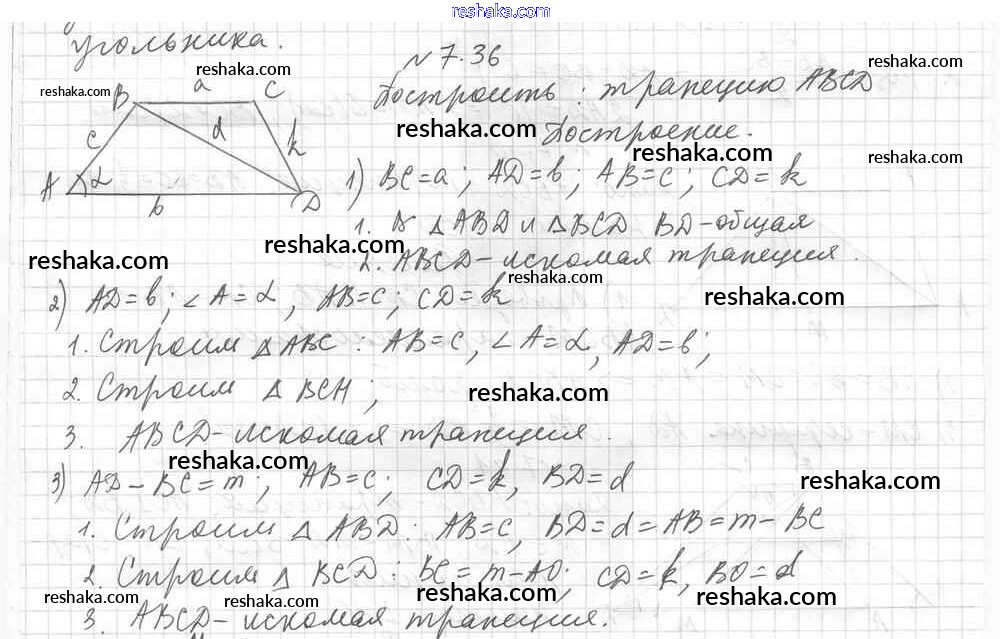 reshaka.com
угольника.
№7.36
reshaka.com
reshaka.com
reshaka.com
B a C
Построить: трапецию ABCD
c d k
reshaka.com
Построение.
reshaka.com
reshaka.com
A α b D
1) BC=a; AD=b; AB=c; CD=k
1. В △ABD и △BCD BD-общая
reshaka.com
reshaka.com
2. ABCD-искомая трапеция.
reshaka.com
reshaka.com
2) AD=b; ∠A=α, AB=c; CD=k
1. Строим △ABC: AB=c, ∠A=α, AD=b;
2. Строим △BCH;
reshaka.com
3. ABCD-искомая трапеция.
reshaka.com
reshaka.com
3) AD-BC=m; AB=c; CD=k, BD=d
1. Строим △ABD: AB=c, BD=d=AB=m-BC
2. Строим △BCD: BC=m-AD; CD=k, BD=d
reshaka.com
reshaka.com
reshaka.com
reshaka.com
3. ABCD-искомая трапеция.